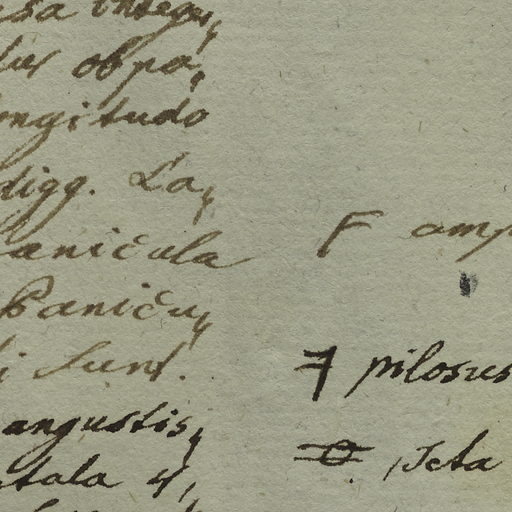 integer,
tur obpo,
ongitudo
digg. La,
anicula
Panicu,
i sunt.
angustis,
tala 4,
F amp
7 pilosus
O. seta